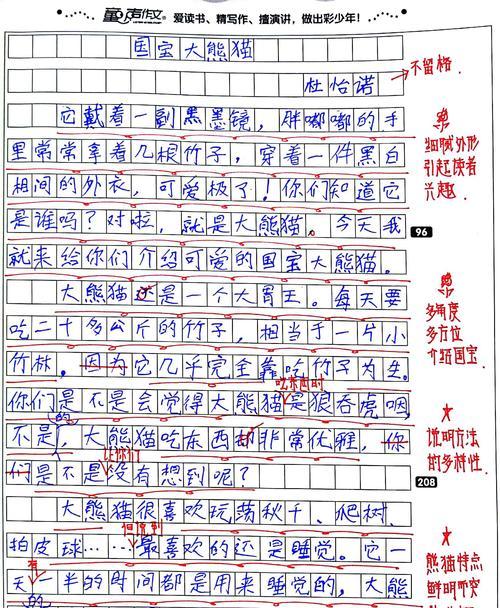 童声作文 爱读书、精写作、擅演讲，做出彩少年！
国宝大熊猫
杜怡诺
不留格
它戴着一副黑墨镜，胖嘟嘟的手
里常常拿着几根竹子，穿着一件黑白
相间的外衣，可爱极了！你们知道它
是谁吗？对啦，就是大熊猫。今天我
96
就来给你们介绍可爱的国宝大熊猫。
细腻外形
引起读者
兴趣
大熊猫还是一个大胃王。每天要
吃二十多公斤的竹子，相当于一片小
竹林。因为它几乎完全靠吃竹子为生。
多角度
多方位
介绍国宝
吃东西时
你们是不是会觉得大熊猫是狼吞虎咽
的
不是，大熊猫吃东西却非常优雅，你
让你们
们是不是没有想到呢？
208
说明方法
的多样性
大熊猫很喜欢玩荡秋千、爬树、
拍皮球……最喜欢的还是睡觉。它一
有
天一半的时间都是用来睡觉的，大熊
的
熊猫特点
鲜明突